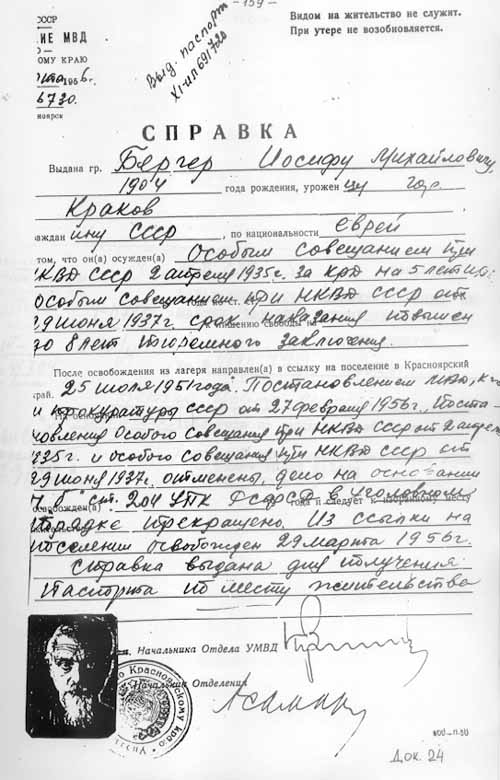 — 159 —
СССР
ИЕ МВД
ОМУ КРАЮ
1956 г.
6730.
ноярск
Видом на жительство не служит.
При утере не возобновляется.
Выд. паспорт
XI-ИЛ 691720
СПРАВКА
Выдана гр. Бергер Иосифу Михайловичу,
1904 года рождения, урожен цу гор.
Краков
раждан ину СССР, по национальности еврей
том, что он(а) осужден(а) Особым совещанием при
НКВД СССР 2 апреля 1935 г. за КРД на 5 лет и
Особым совещанием при НКВД СССР от
29 июня 1937 г. срок наказания повышен
до 8 лет тюремного заключения.
После освобождения из лагеря направлен(а) в ссылку на поселение в Красноярский
край. 25 июля 1951 года. Постановлением
и прокуратуры СССР от 27 февраля 1956 г. Поста-
новления Особого Совещания при НКВД СССР от 2 апреля
1935 г. и особого совещания при НКВД СССР от
29 июня 1937 г. отменено, дело на основании
ст. 204 УПК РСФСР в уголовном
порядке прекращено. Из ссылки на
поселении освобожден 29 марта 1956 г.
Справка выдана для получения
паспорта по месту жительства
Начальника Отдела УМВД
Начальник Отделения
по Красноярскому краю
Док. 24